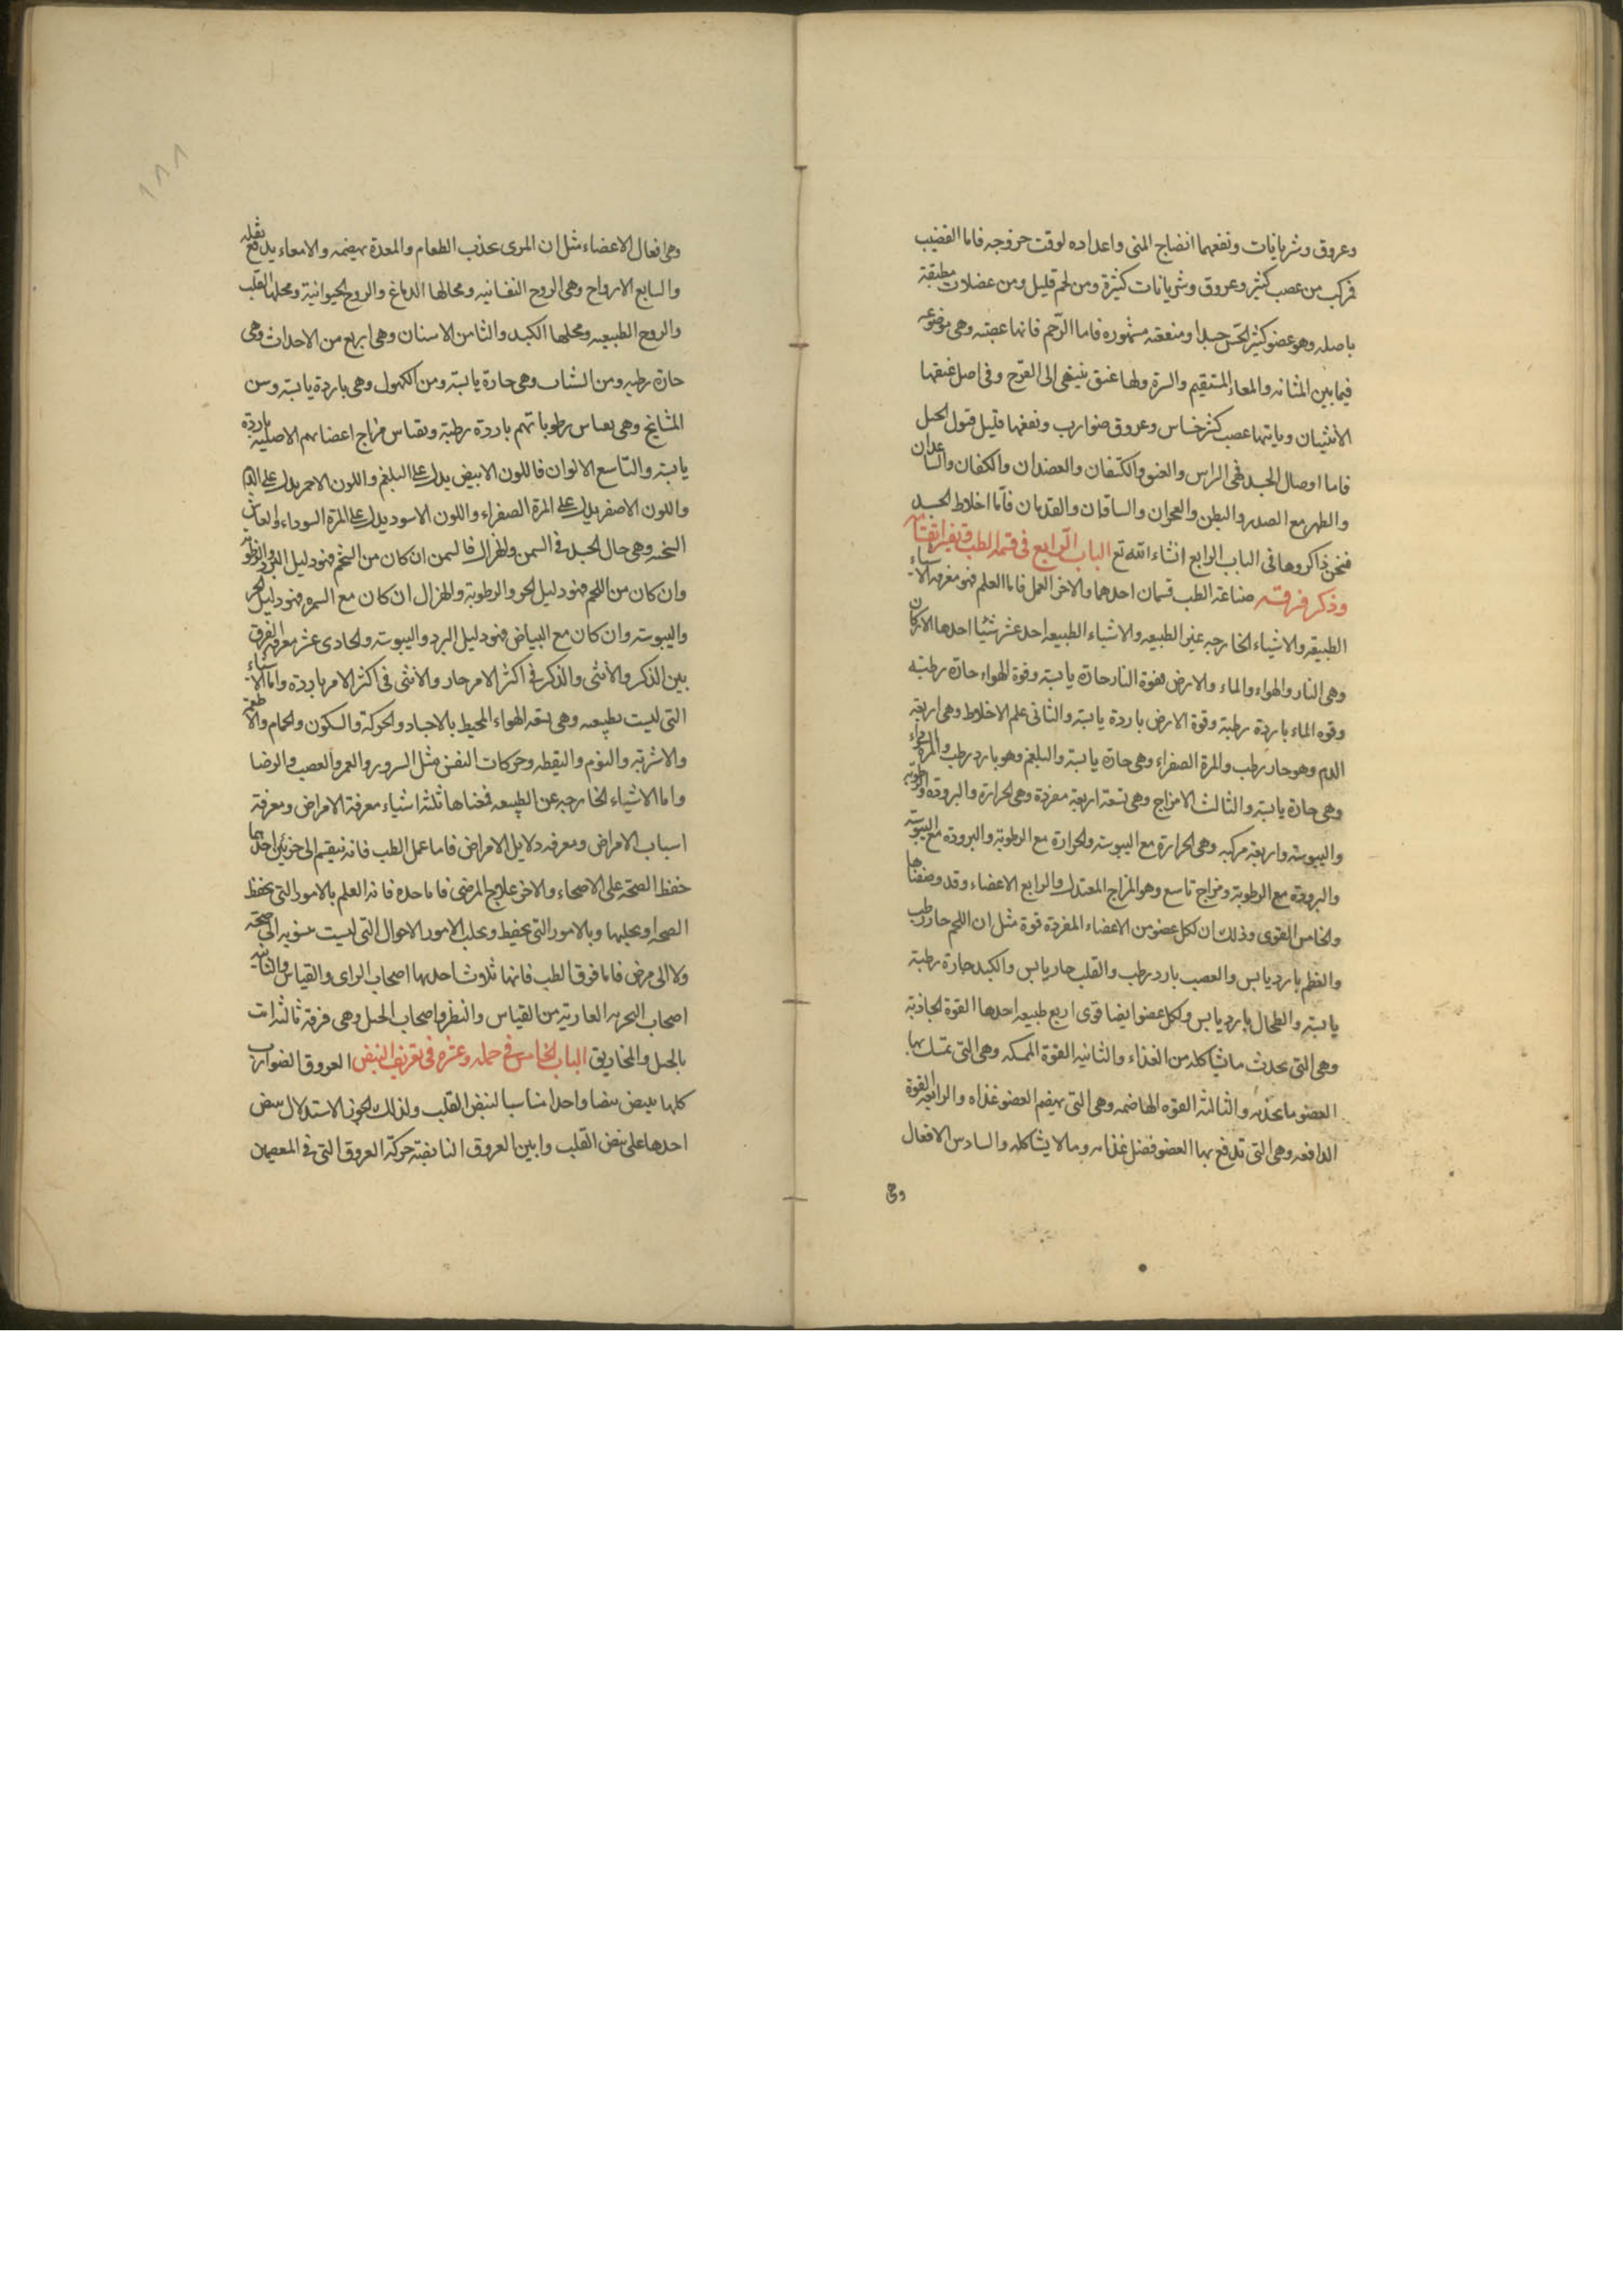 وعروق وشريانات ونفعهما انضاج المنى واعداده لوقت خروجه فاما القضيب
فمركب من عصب كثير وعروق وشريانات كثيرة ومن لحم قليل ومن عضلات مطيقة
باصله وهو عضو كثير الحس جيدا ومنفعته مشهوره فاما الرحم فانها عصبته وهى موضوعه
فيما بين المثانه والمعاء المستقيم والسرة ولها عنق ينتهى الى الفرج وفى اصل عنقها
الانثيان وياتيها عصب وعروق ضوارب ونفعها قبول الحبل
فاما اوصال الجسد فهى الراس والعنق والكتفان والعضدان والكفان والساعدان
والظهر مع الصدر والبطن والساقان والقدمان فاما اخلاط الجسد
فنحن ذاكروها فى الباب الرابع انشاء الله تع الباب الرابع فى قسمة الطب
وذكر فرقته صناعة الطب قسمان احدهما والاخر العمل فاما العلم فهو معرفة الاشياء
الطبيعيه والاشياء الخارجه عن الطبيعه والاشياء الطبيعيه احد عشر شيئا احدها الاركان
وهى النار والهواء والماء والارض فقوة النار حارة يابسة وقوة الهواء حارة رطبة
وقوه الماء باردة رطبة وقوة الارض باردة يابسة والثانى علم الاخلاط وهى اربعة
الدم وهو حار رطب والمرة الصفراء وهى حارة يابسة والبلغم وهو بارد رطب والمرة
وهى حارة يابسة والثالث الامزاج وهى تسعة اربعة مفردة وهى الحرارة والبرودة والرطوبه
واليبوسة واربعة مركبه وهى الحرارة مع اليبوسة والحرارة مع الرطوبة والبرودة مع اليبوسة
والبرودة مع الرطوبة ومزاج تاسع وهو المزاج المعتدل والرابع الاعضاء وقد وصفناها
والخامس القوى وذلك ان لكل عضو من الاعضاء المفردة قوة مثل ان اللحم حار رطب
والعظم بارد يابس والعصب بارد رطب والقلب حار يابس والكبد حارة رطبة
يابسة والطحال بارد يابس ولكل عضو ايضا قوى اربع طبيعه احدها القوة الجاذبة
وهى التى تحدث ما يشاكله من الغذاء والثانيه القوة الممسكه وهى التى تمسك بها
العضو ما يجذبه والثالثة القوه الهاضمه وهى التى يهضم العضو غذاه والرابعه القوة
الدافعه وهى التى تدفع بها العضو فضل غذائه وما لا يشاكله والسادس الافعال
وهى
١٨٨
وهى افعال الاعضاء مثل ان المرى يجذب الطعام والمعدة يهضمه والامعاء يدفع ثقله
والسابع الارواح وهى الروح النفسانيه ومحالها الدماغ والروح الحيوانية ومحلها القلب
والروح الطبيعيه ومحلها الكبد والثامن الاسنان وهى اربع من الاحداث وهى
حارة رطبه ومن الشباب وهى حارة يابسة ومن الكهول وهى باردة يابسة وسن
المشايخ وهى بقياس رطوباتهم باردة رطبة وبقياس مزاج اعضائهم الاصليه باردة
يابسة والتاسع الالوان فاللون الابيض يدل على البلغم واللون الاحمر يدل على الدم
واللون الاصفر يدل على المرة الصفراء واللون الاسود يدل على المرة السوداء والعاشر
السحنه وهى حال الجسد فى السمن والهزال فالسمن ان كان من الشحم فهو دليل البرد والرطوبة
وان كان من اللحم فهو دليل الحر والرطوبة والهزال ان كان مع السمره فهو دليل الحر
واليبوسة وان كان مع البياض فهو دليل البرد واليبوسة والحادى عشر معرفة الفرق
بين الذكر والانثى والذكر فى اكثر الامر حار والانثى فى اكثر الامر باردة واما الاشياء
التى ليست بطبيعيه وهى ستة الهواء المحيط بالاجساد والحركة والسكون والحمام والاطعمة
والاشربة والنوم واليقظه وحركات النفس مثل السرور والغم والغضب والرضا
واما الاشياء الخارجه عن الطبيعه ثلثه اشياء معرفة الامراض ومعرفة
اسباب الامراض ومعرفه دلايل الامراض فاما عمل الطب فانه ينقسم الى جزئين احدهما
حفظ الصحة على الاصحاء والاخر علاج المرضى فاما حده فانه العلم بالامور التى يحفظ
الصحه او يجلبها وبالامور التى تحفيظ ويجلب الامور الاحوال التى ليست منسوبه الى صحة
ولا الى مرض فاما فرق الطب فانها ثلاث احدها اصحاب الراى والقياس والثانيه
اصحاب التجربه العارية من القياس والنظر واصحاب الحيل وهى فرقة ثالثه اتت
بالحيل والمخاريق الباب الخامس فى جمله وعشره فى تعريف النبض العروق الضوارب
كلها ينبض نبضا واحدا مناسبا لنبض القلب ولذلك يجوز الاستدلال بنبض
احدها على نبض القلب وابين العروق النابضة حركة العروق التى فى المعصمين